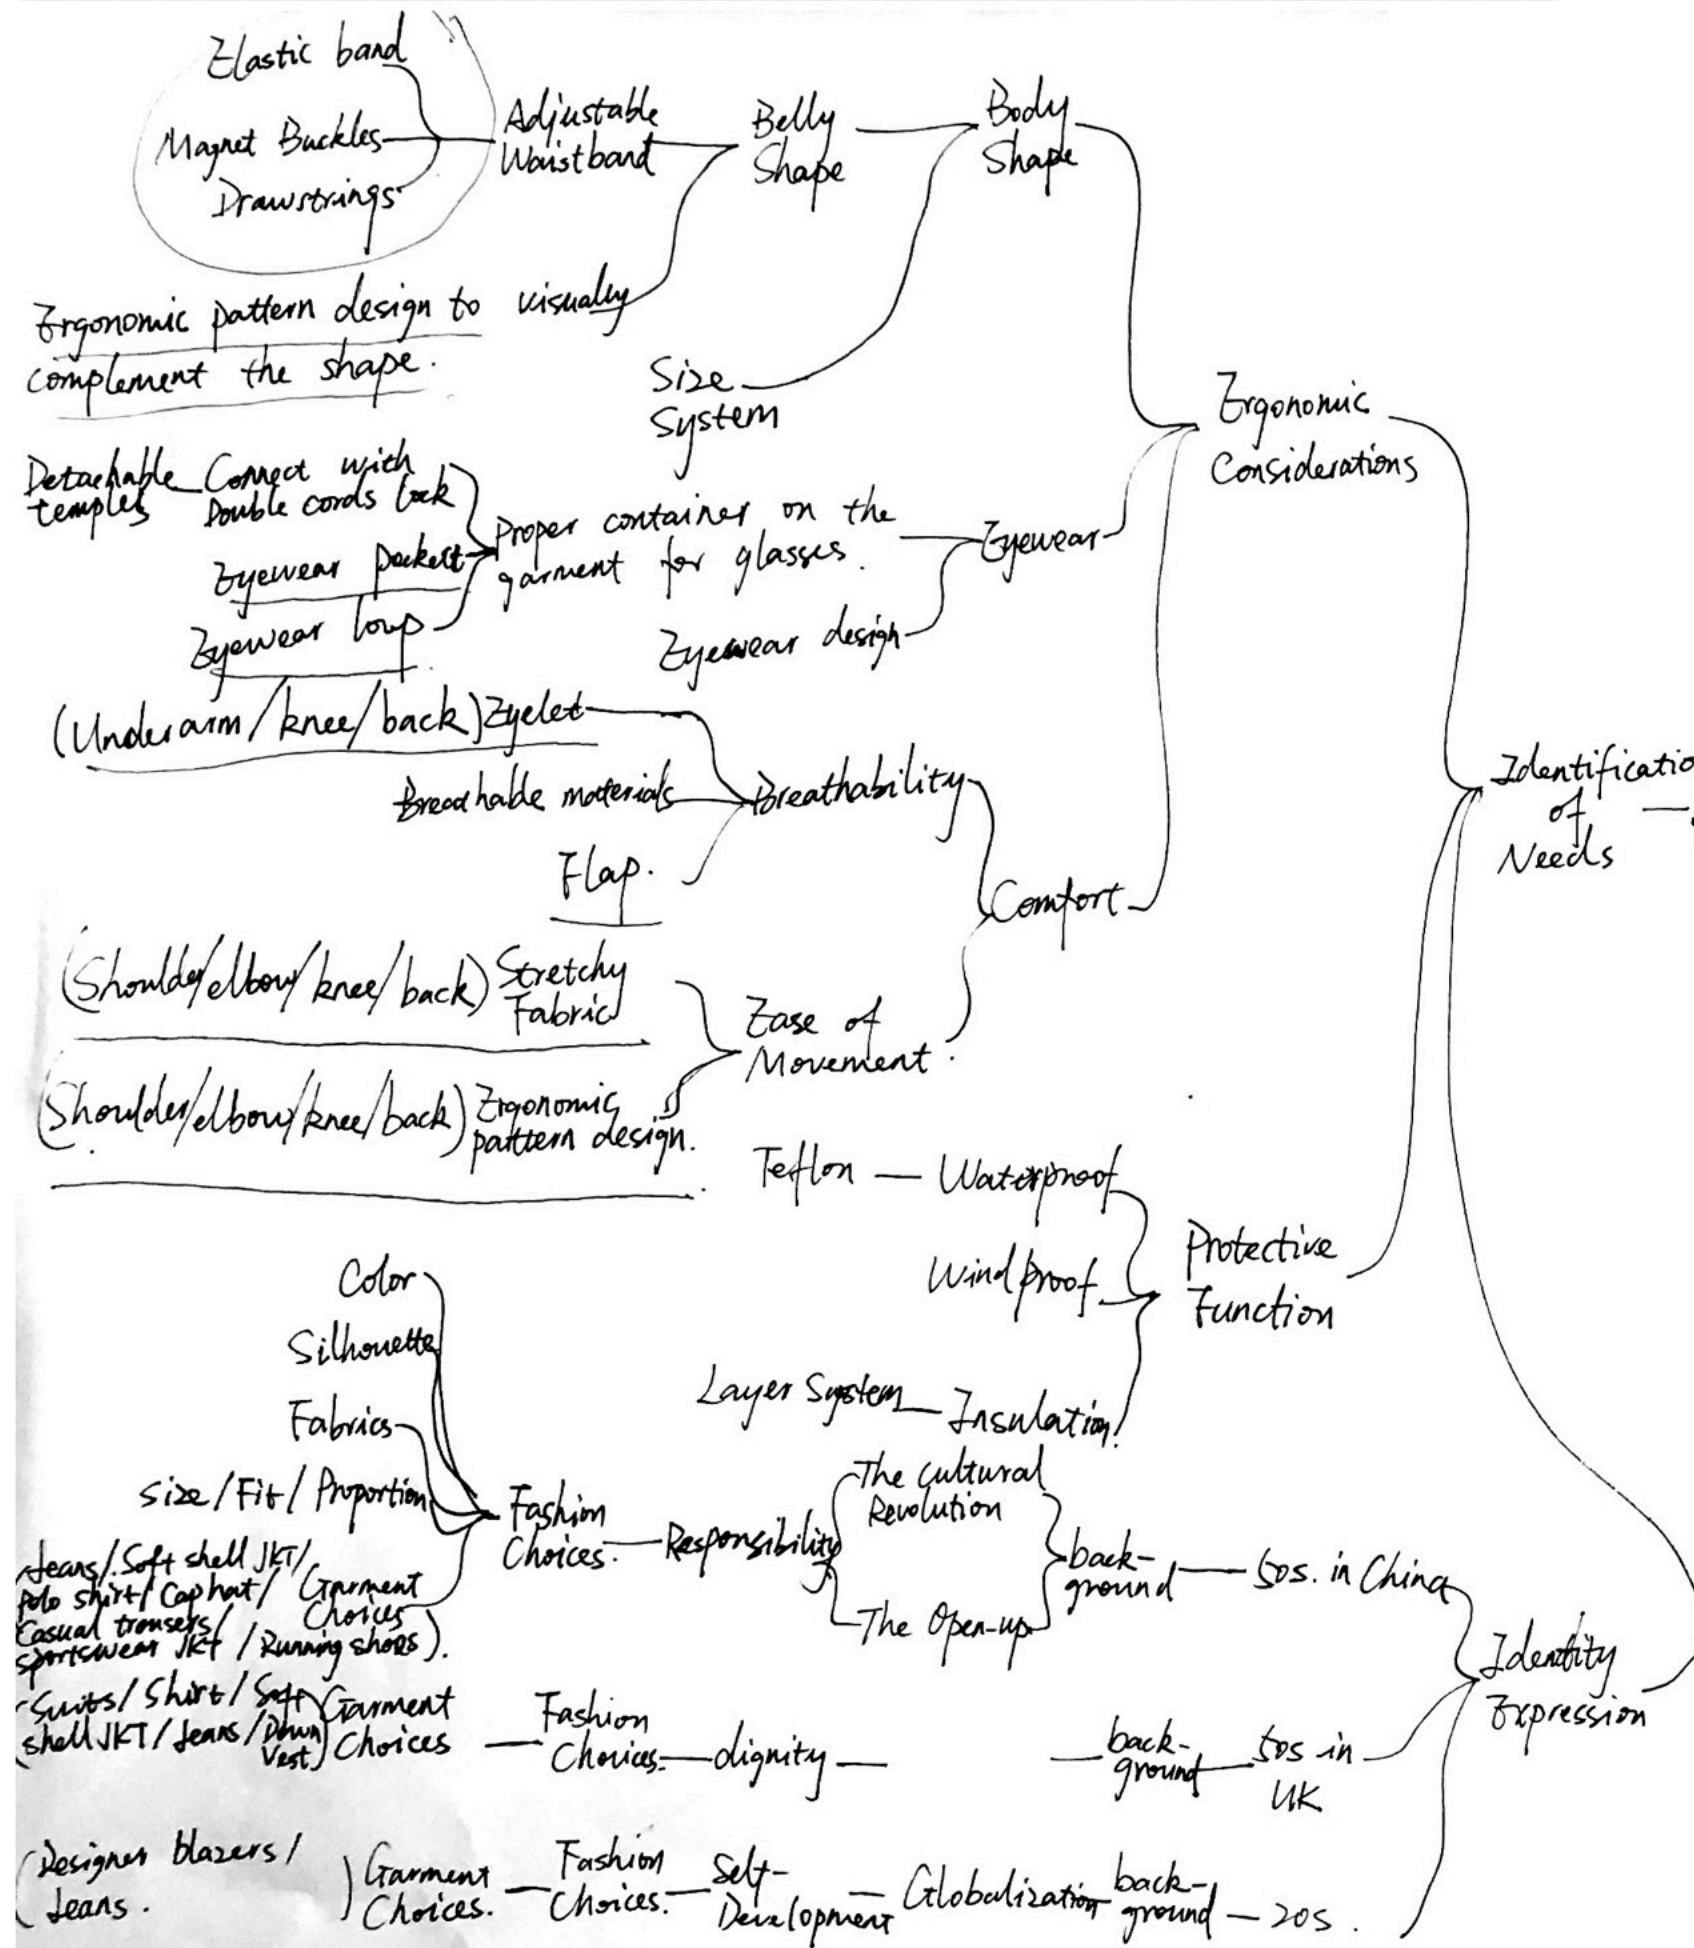 Elastic band
Magnet Buckles
Drawstrings
Adjustable
Waistband
Belly
Shape
Body
Shape
Ergonomic pattern design to visually
complement the shape.
Size
System
Ergonomic
Considerations
Detachable
temples
Connect with
Double cords lock
Eyewear pocket
Eyewear loup
Proper container on the
garment for glasses.
Eyewear
Eyewear design
(Underarm/knee/back) Eyelet
Breathable materials
Flap.
Breathability
Comfort
Identificatio
of
Needs
(Shoulder/elbow/knee/back) Stretchy
Fabric
(Shoulder/elbow/knee/back) Ergonomic
pattern design.
Ease of
Movement.
Teflon — Waterproof
Windproof
Layer System — Insulation
Protective
Function
Color
Silhouette
Fabrics
Size/Fit/Proportion
Jeans/Soft shell JKT/
Polo shirt/Cap hat/
Casual trousers/
Sportswear JKT/Running shoes).
Garment
Choices
Fashion
Choices. — Responsibility
The Cultural
Revolution
The Open-up
back-
ground — 50s. in China
Identity
Expression
(Suits/Shirt/Soft
shell JKT/Jeans/Down
Vest)
Garment
Choices — Fashion
Choices. — dignity —
— back-
ground — 50s in
UK
(Designer blazers/
Jeans. )
Garment
Choices. — Fashion
Choices. — Self-
Development — Globalization — back-
ground — 20s.